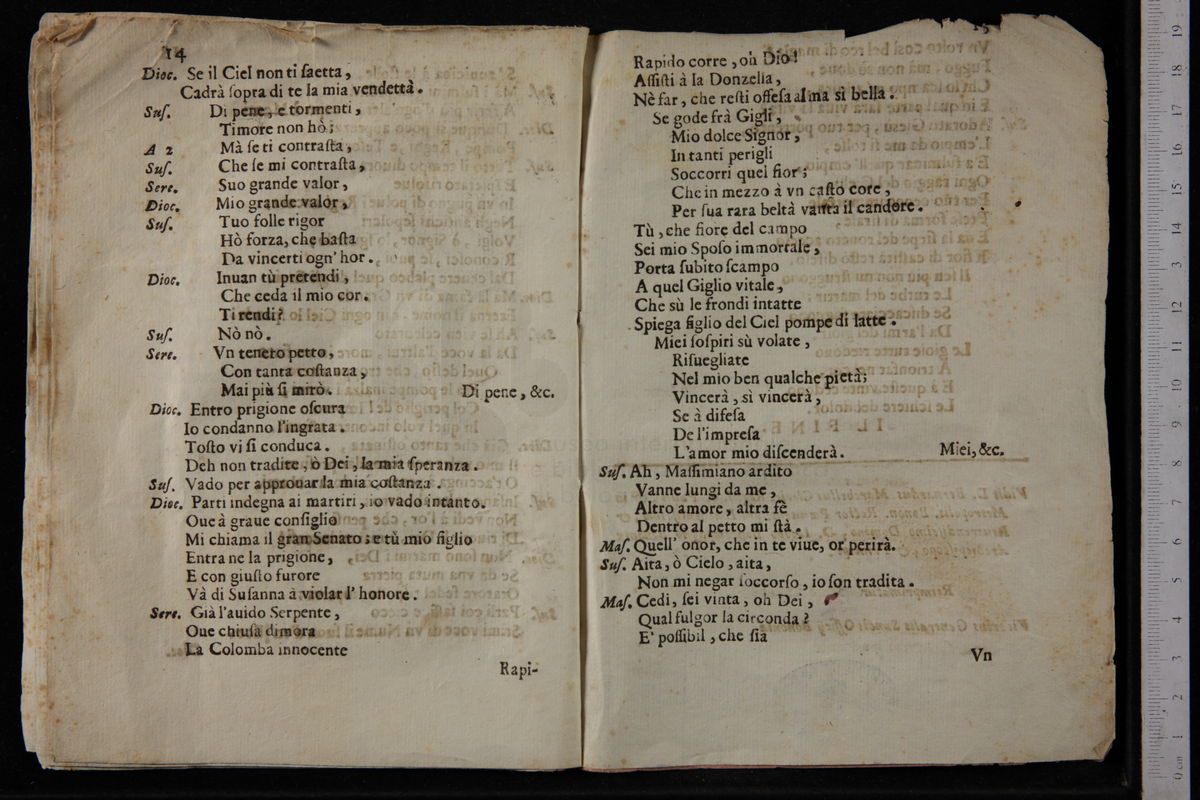 14
Dioc. Se il Ciel non ti ſaetta,
Cadrà ſopra di te la mia vendetta.
Suſ. Di pene, e tormenti,
Timore non hò;
A 2 Mà ſe ti contraſta,
Suſ. Che ſe mi contraſta,
Sere. Suo grande valor,
Dioc. Mio grande valor,
Suſ. Tuo folle rigor
Hò forza, che baſta
Da vincerti ogn' hor.
Dioc. Inuan tù pretendi,
Che ceda il mio cor.
Ti rendi?
Suſ. Nò nò.
Sere. Vn tenero petto,
Con tanta coſtanza,
Mai più ſi mirò. Di pene, &c.
Dioc. Entro prigione oſcura
Io condanno l'ingrata.
Toſto vi ſi conduca.
Deh non tradite, ò Dei, la mia ſperanza.
Suſ. Vado per approuar la mia coſtanza.
Dioc. Parti indegna ai martiri, io vado intanto.
Oue à graue conſiglio
Mi chiama il gran Senato; e tù mio figlio
Entra ne la prigione,
E con giuſto furore
Và di Suſanna à violar l' honore.
Sere. Già l'auido Serpente,
Oue chiuſa dimora
La Colomba innocente
Rapi-
15
Rapido corre, oh Dio!
Aſſiſti à la Donzella,
Nè far, che reſti offeſa alma sì bella.
Se gode frà Gigli,
Mio dolce Signor,
In tanti perigli
Soccorri quel fior;
Che in mezzo à vn caſto core,
Per ſua rara beltà vanta il candore.
Tù, che fiore del campo
Sei mio Spoſo immortale,
Porta ſubito ſcampo
A quel Giglio vitale,
Che sù le frondi intatte
Spiega figlio del Ciel pompe di latte.
Miei ſoſpiri sù volate,
Riſuegliate
Nel mio ben qualche pietà;
Vincerà, sì vincerà,
Se à difeſa
De l'impreſa
L'amor mio diſcenderà. Miei, &c.
Suſ. Ah, Maſſimiano ardito
Vanne lungi da me,
Altro amore, altra fè
Dentro al petto mi ſtà.
Maſ. Quell' onor, che in te viue, or perirà.
Suſ. Aita, ò Cielo, aita,
Non mi negar ſoccorſo, io ſon tradita.
Maſ. Cedi, ſei vinta, oh Dei,
Qual fulgor la circonda?
E' poſſibil, che ſia
Vn